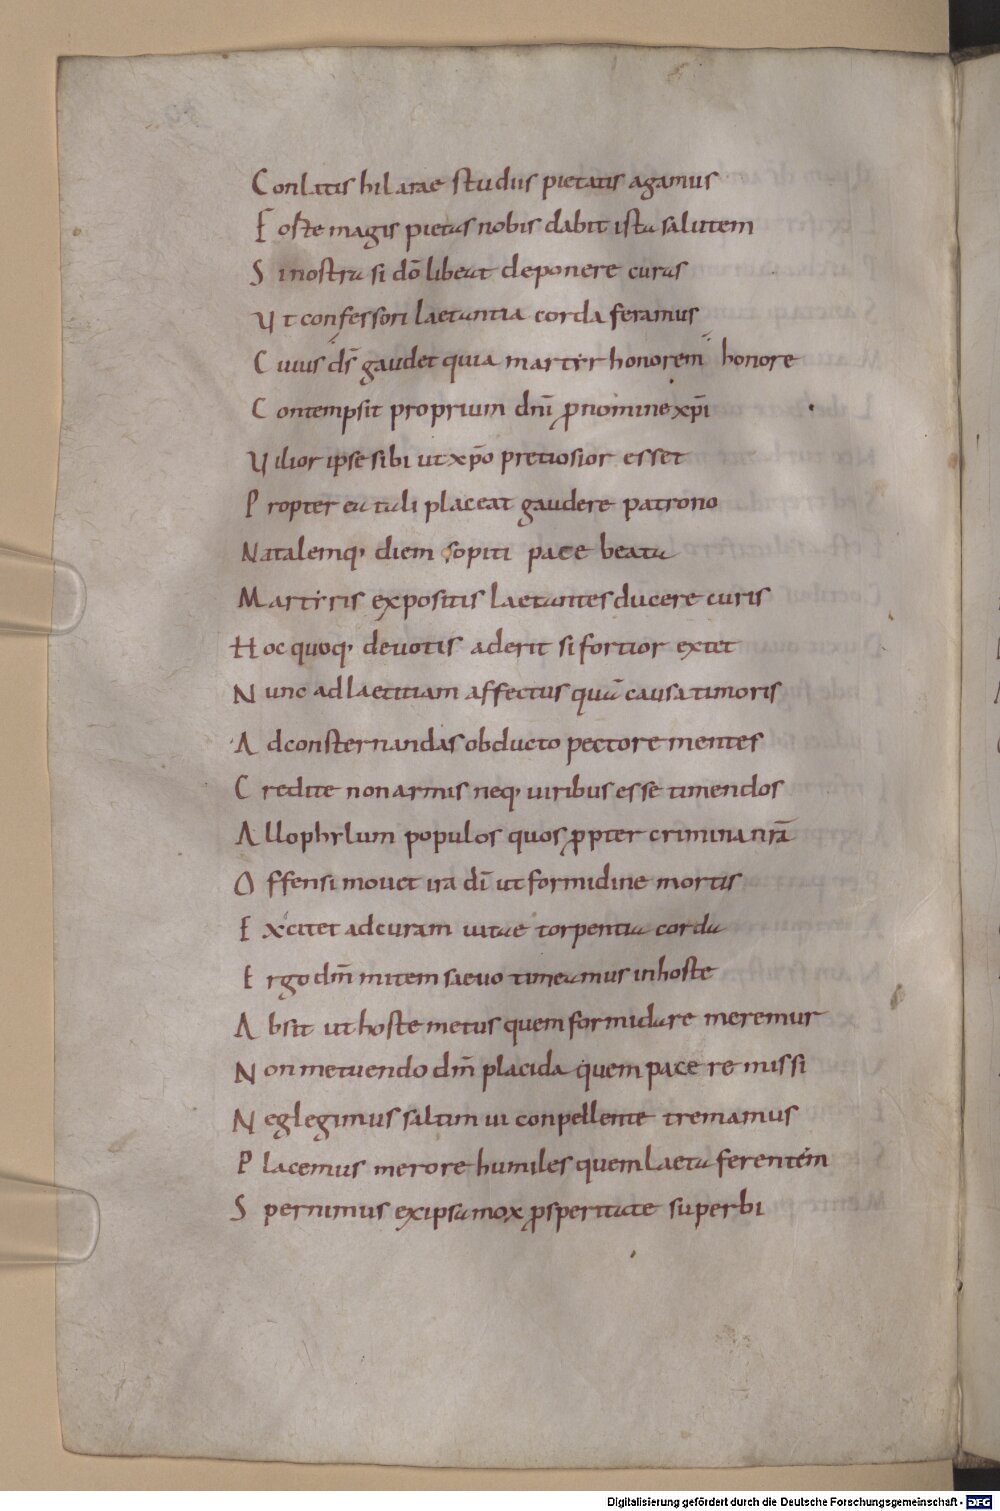 Conlatis hilarae studiis pietatis agamus
Foste magis pietas nobis dabit ista salutem
Si nostra si dō libeat deponere curas
Vt confessori laetantia corda feramus
Cuius ds̄ gaudet quia martyr honorem honore
Contempsit proprium dn̄i ꝓ nomine xp̄i
Vilior ipse sibi ut xp̄o pretiosior esset
Propter ea tali placeat gaudere patrono
Natalemq· diem sopiti pace beata
Martyris expositis laetantes ducere curis
Hoc quoq· deuotis aderit si fortior extet
Nunc ad laetitiam affectus quā causa timoris
Ad consternandas obducto pectore mentes
Credite non armis neq· uiribus esse timendos
Allophylum populos quos ꝓpter crimina nr̄a
Offensi mouet ira dī ut formidine mortis
Excitet ad curam uitae torpentia corda
Ergo dn̄m mitem saeuo timeamus in hoste
Absit ut hoste metus quem formidare meremur
Non metuendo dn̄m placida quem pace remissi
Neglegimus saltim ui conpellente tremamus
Placemus merore humiles quem laeta ferentem
Spernimus ex ipsa mox ꝓsperitate superbi
Digitalisierung gefördert durch die Deutsche Forschungsgemeinschaft - DFG